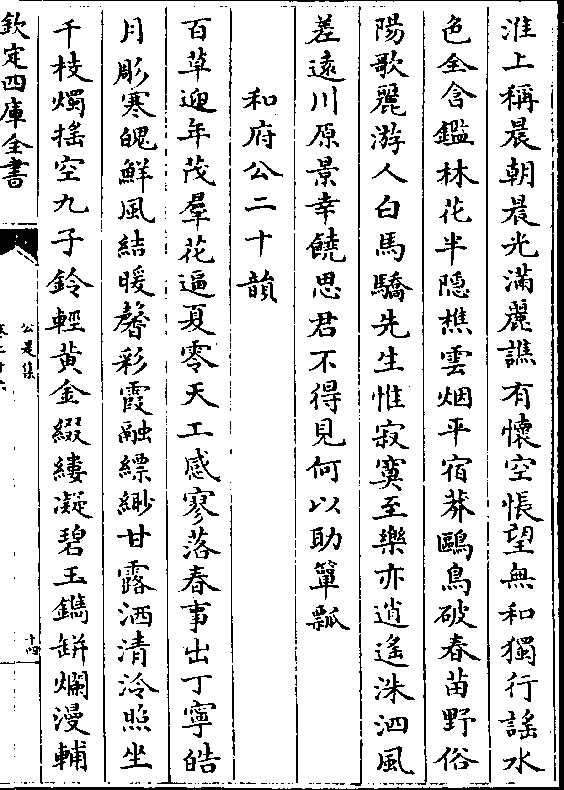 淮上稱晨朝晨光滿麗譙有懷空悵望無和獨行謡水
色全含鑑林花半隠樵雲烟平宿莽鷗鳥破春苗野俗
陽歌麗游人白馬驕先生惟寂寞至樂亦逍遙洙泗風
差遠川原景幸饒思君不得見何以助簞瓢
和府公二十韻
百草迎年茂羣花逼夏零天工感寥落春事出丁寧皓
月彫寒魄鮮風結暖馨彩霞融縹緲甘露洒清泠照坐
千枝燭揺空九子鈴輕黄金綴縷凝碧玉鐫缾爛漫輔
欽定四庫全書
公是集
卷二十六
十四